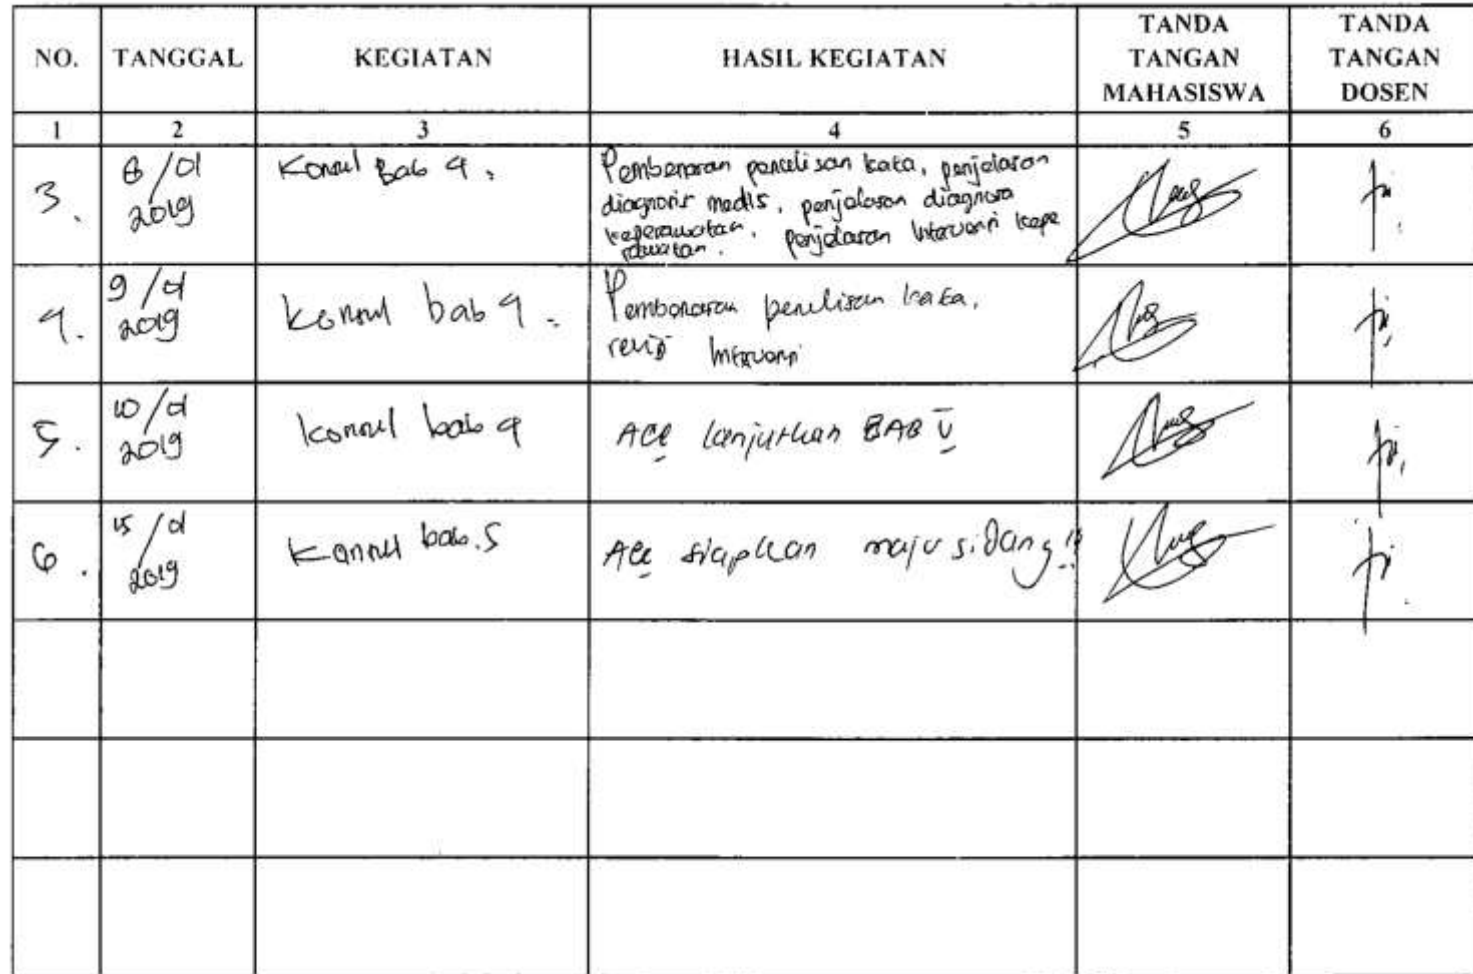 NO. TANGGAL KEGIATAN HASIL KEGIATAN TANDA TANGAN MAHASISWA TANDA TANGAN DOSEN
1 2 3 4 5 6
3. 8/01 2019 Konsul Bab 4. Pembenaran penulisan kata, penjelasan
diagnosis medis, penjelasan diagnosa
keperawatan, penjelasan Intervensi kepe
rawatan.
4. 9/01 2019 Konsul bab 4. Pembenaran penulisan kata,
revisi Intervensi
5. 10/01 2019 konsul bab 4 ACC lanjutkan BAB V
6. 15/01 2019 Konsul bab.5 ACC siapkan maju sidang!!